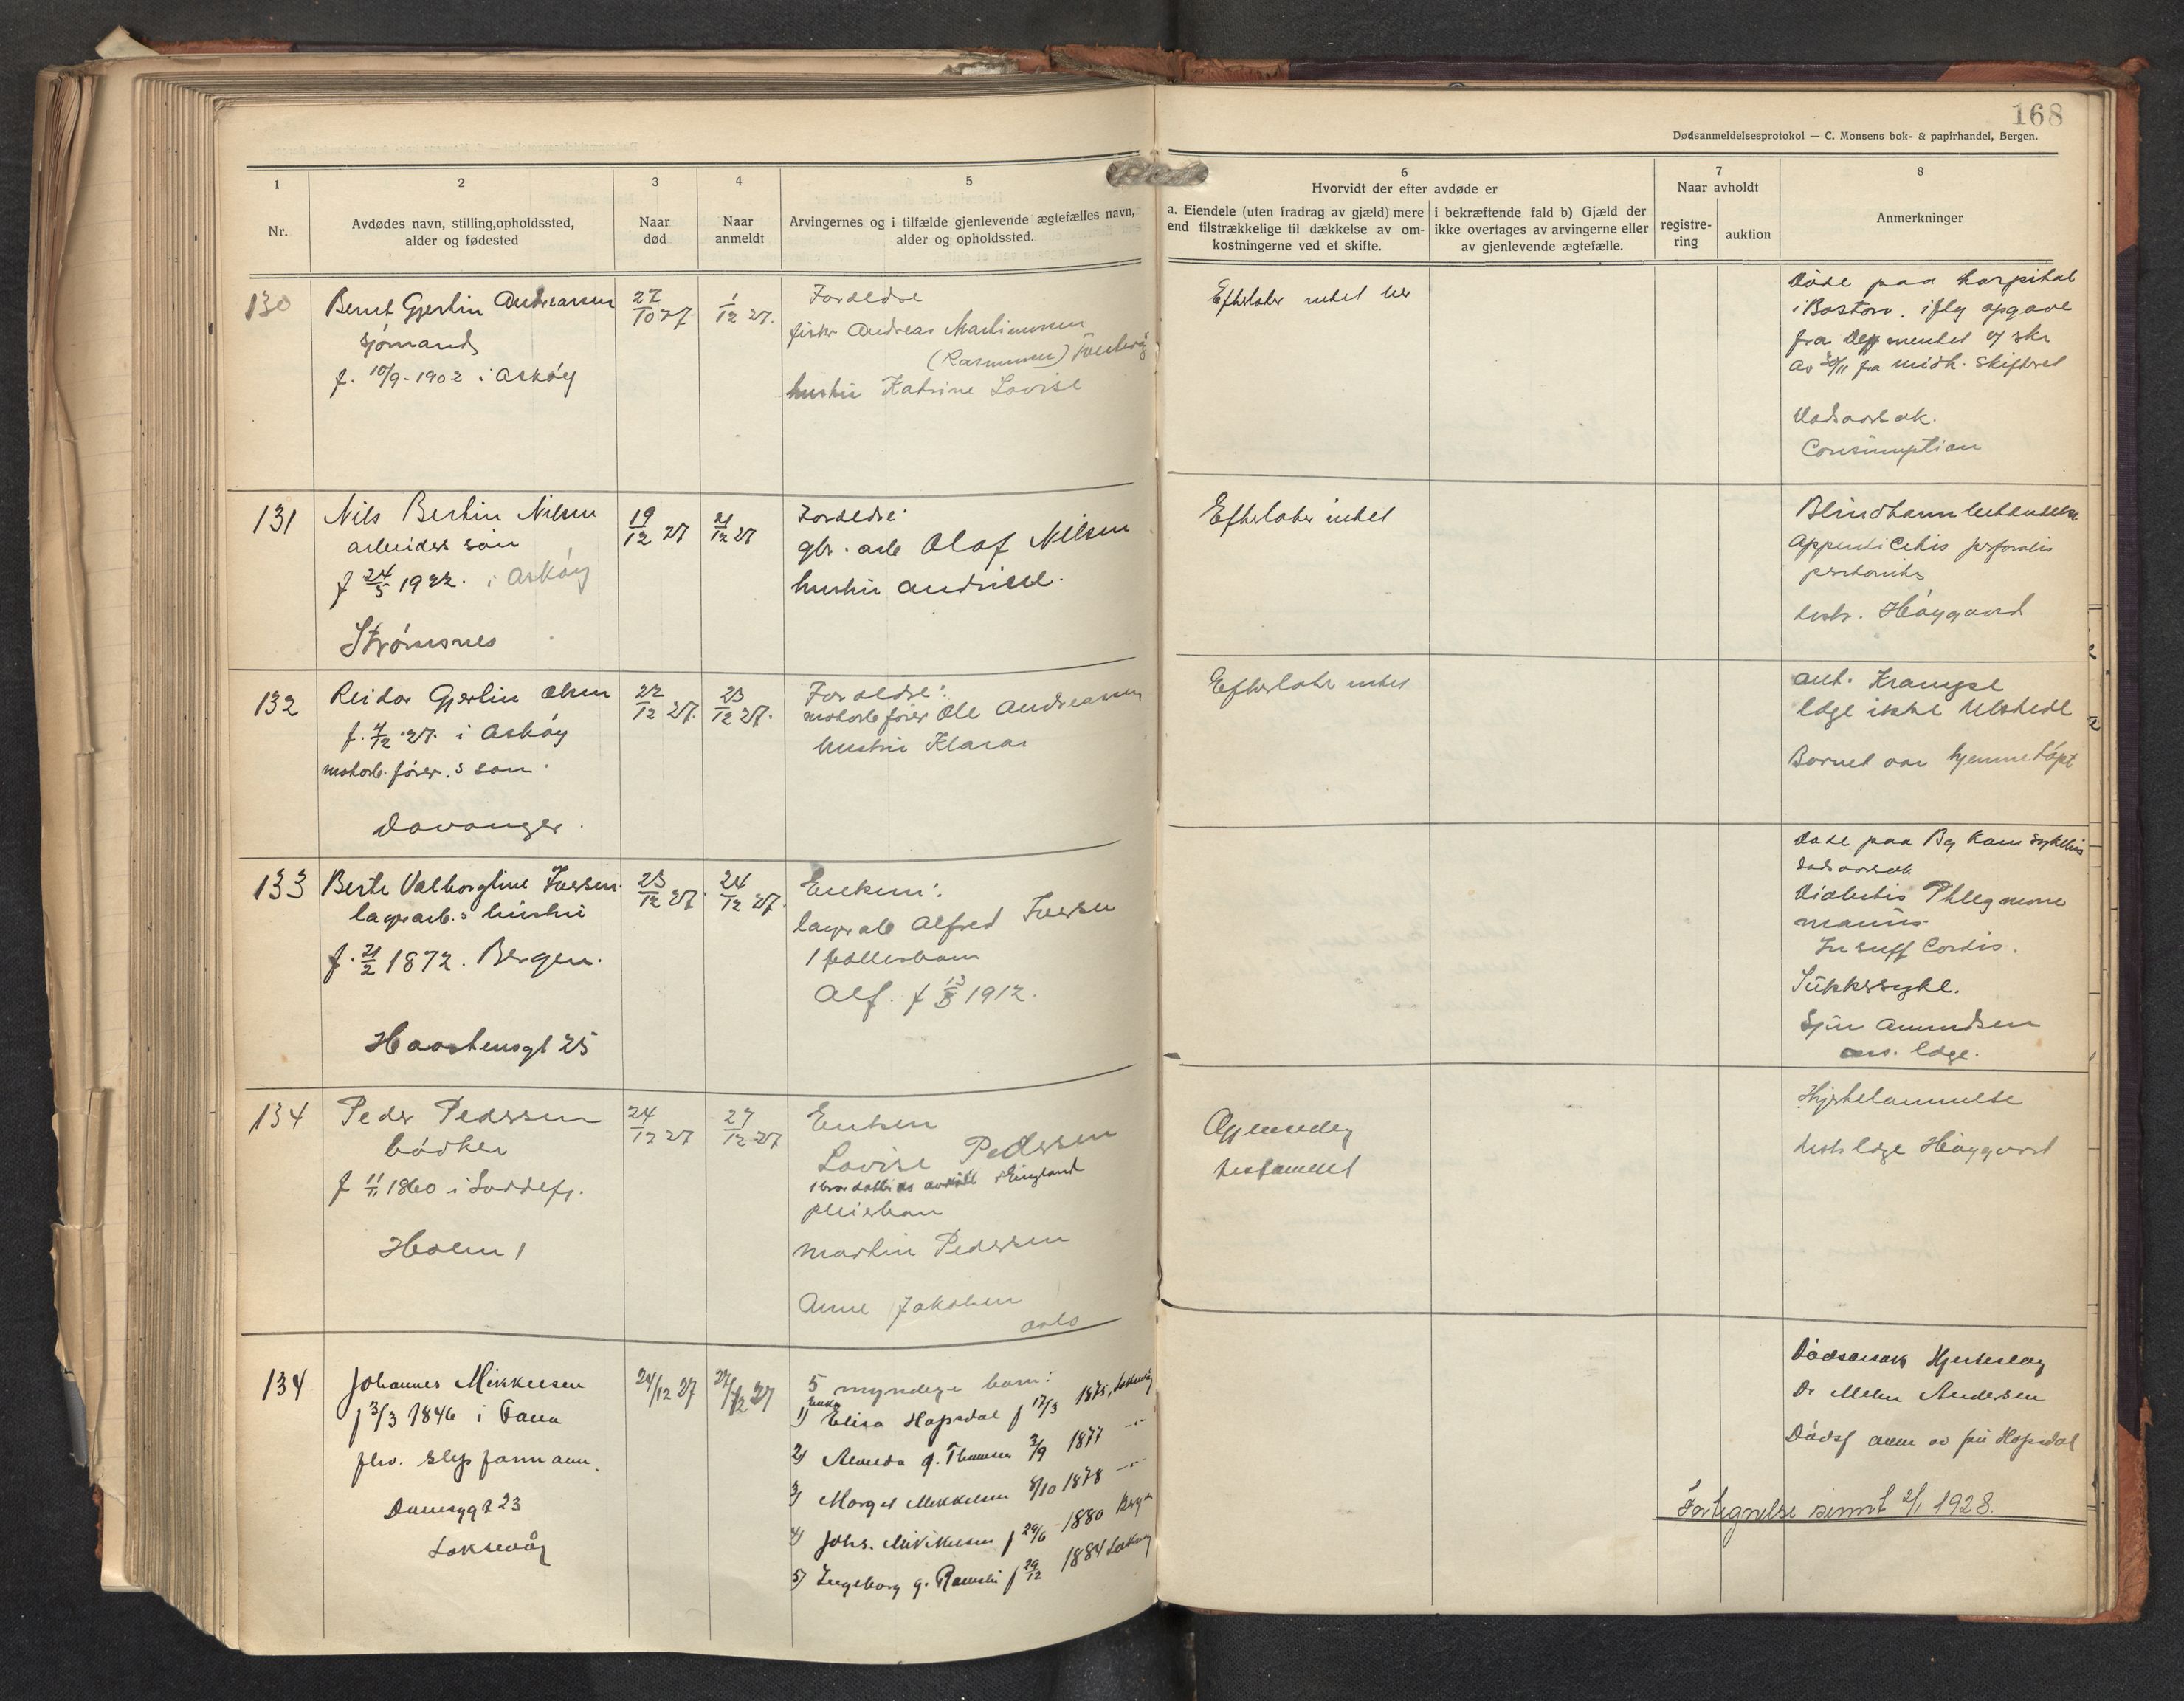 168
Dødsanmeldelsesprotokol — C. Monsens bok- & papirhandel, Bergen.
1
Nr.
2
Avdødes navn, stilling, opholdssted,
alder og fødested
3
Naar
død
4
Naar
anmeldt
5
Arvingernes og i tilfælde gjenlevende ægtefælles navn,
alder og opholdssted.
6
Hvorvidt der efter avdøde er
a. Eiendele (uten fradrag av gjæld) mere
end tilstrækkelige til dækkelse av om-
kostningerne ved et skifte.
i bekræftende fald b) Gjæld der
ikke overtages av arvingerne eller
av gjenlevende ægtefælle.
7
Naar avholdt
registre-
ring
auktion
8
Anmerkninger
130
Bernt Gjertin Andreassen
sjømand
f. 10/9-1902 i Askøy
27/10 27
1/12 27.
Forældre
fisker Andreas Martinussen
(Rasmussen)
hustru Katrine Lovise
Efterlater intet her
Døde paa hospital
i Boston. iflg opgave
fra Departementet
av 30/11 fra Midh. Skifteret
Dødsaarsak.
Consumption
131
Nils Bertin Nilsen
arbeiders søn
f 24/5 1922. i Askøy
Strømsnes
19/12 27
21/12 27
Forældre:
gbr. arb Olaf Nilsen
hustru Andrine.
Efterlater intet
Blindtarmbetændelse
Appendicitis perforatis
peritonitis
distr. Høygaard
132
Reidar Gjertin Olsen
f. 7/12 27. i Askøy
motorb. fører.s søn
Davanger.
22/12 27.
23/12 27.
Forældre:
motorb fører Ole Andreassen
hustru Klara
Efterlater intet
ant. Krampe
læge ikke tilstede
Barnet var hjemmedøpt
133
Berte Valborgline Iversen
lagerarb.s hustru
f. 21/2 1872. Bergen.
25
23/12 27.
24/12 27.
Enkem:
lagerarb Alfred Iversen
1 fællesbarn
Alf. f 1912.
Døde paa Bg Kom Sykehus
dødsaarsak
Diabetis Phlegmone
manus.
Insuff Cordis.
Sukkersyke.
Amundsen
ass. læge.
134
Peder Pedersen
bødker
f 11/11 1860 i Loddefj.
Holm 1
24/12 27
27/12 27
Enken
Lovise Pedersen
i England
pleiebarn
Martin Pedersen
Anne Jakobsen
Oslo
Gjensidig
testament
Hjertelammelse
læge Høygaard
134
Johannes Mikkelsen
f 3/3 1846 i Fana
fhv. Slipformann.
Damsygt 23
Laksevåg
24/12 27
27/12 27
5 myndige barn:
Enke
1) Elisa Hopsdal f 17/3 1875, Laksevåg
2) g. Thomsen 3/9 1877 —"—
3) Margit Mikkelsen 8/10 1878 —"—
4) Johs. Mikkelsen f 29/6 1880 Bergen
5) Ingeborg g. f 29/12 1884 Laksevåg
Dødsårsak Hjerteslag
Dr Andersen
Dødsf anm av fru Hopsdal
Fortegnelse sendt 2/1 1928.